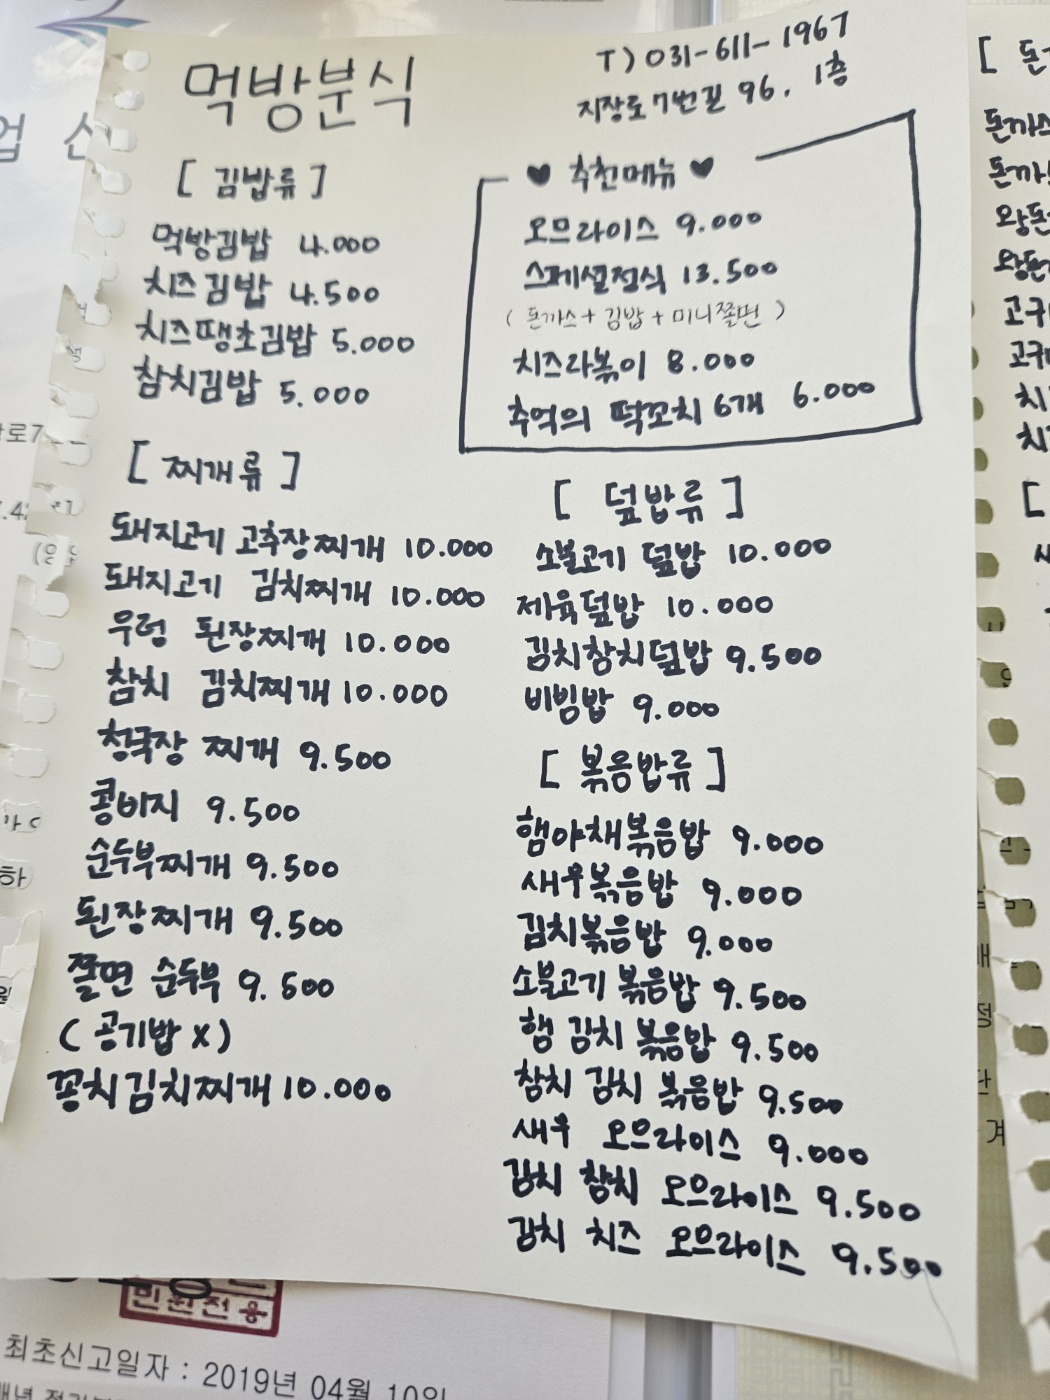 먹방분식
T) 031-611-1967
지장로7번길 96. 1층
[ 김밥류 ]
먹방김밥 4.000
치즈김밥 4.500
치즈땡초김밥 5.000
참치김밥 5.000
♥ 추천메뉴 ♥
오므라이스 9.000
스페셜정식 13.500
( 돈까스 + 김밥 + 미니쫄면 )
치즈라볶이 8.000
추억의 떡꼬치 6개 6.000
[ 찌개류 ]
돼지고기 고추장찌개 10.000
돼지고기 김치찌개 10.000
우렁 된장찌개 10.000
참치 김치찌개 10.000
청국장 찌개 9.500
콩비지 9.500
순두부찌개 9.500
된장찌개 9.500
쫄면 순두부 9.500
( 공기밥 X )
꽁치김치찌개 10.000
[ 덮밥류 ]
소불고기 덮밥 10.000
제육덮밥 10.000
김치참치덮밥 9.500
비빔밥 9.000
[ 볶음밥류 ]
햄야채볶음밥 9.000
새우볶음밥 9.000
김치볶음밥 9.000
소불고기 볶음밥 9.500
햄 김치 볶음밥 9.500
참치 김치 볶음밥 9.500
새우 오므라이스 9.000
김치 참치 오므라이스 9.500
김치 치즈 오므라이스 9.500
[ 돈
돈까스
돈까
왕돈
왕돈
고구
고구
치
치
[
민원전용
최초신고일자 : 2019년 04월 10일